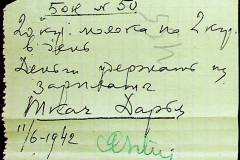 БОН № 50
20 куп. молока по 2 куп.
в день
Деньги удержать из
зарплаты
Ткач Дарья
11/6-1942